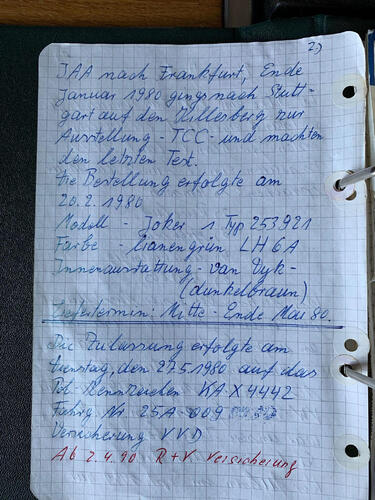 2)
IAA nach Frankfurt, Ende
Januar 1980 gings nach Stutt-
gart auf den Killesberg zur
Ausstellung - TCC - und machten
den letzten Test.
Die Bestellung erfolgte am
20.2.1980
Modell - Joker 1 Typ 253921
Farbe - Lianengrün LH6A
Innenausstattung - van Dyk -
(dunkelbraun)
Liefertermin: Mitte - Ende Mai 80.
Die Zulassung erfolgte am
Dienstag, den 27.5.1980 auf das
Pol. Kennzeichen KA-X 4442
Fahrg. Nr. 25A-009
Versicherung VVD
Ab 2.4.90 R+V Versicherung